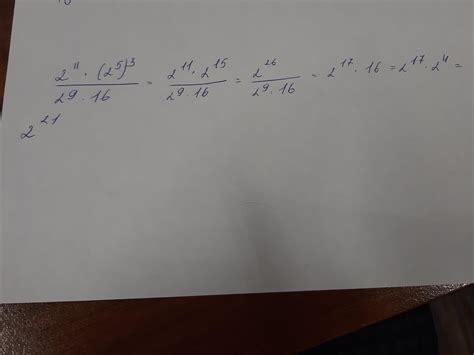 \frac{2^{11} \cdot (2^5)^3}{2^9 \cdot 16} = \frac{2^{11} \cdot 2^{15}}{2^9 \cdot 16} = \frac{2^{26}}{2^9 \cdot 16} = 2^{17} \cdot 16 = 2^{17} \cdot 2^4 =
2^{21}